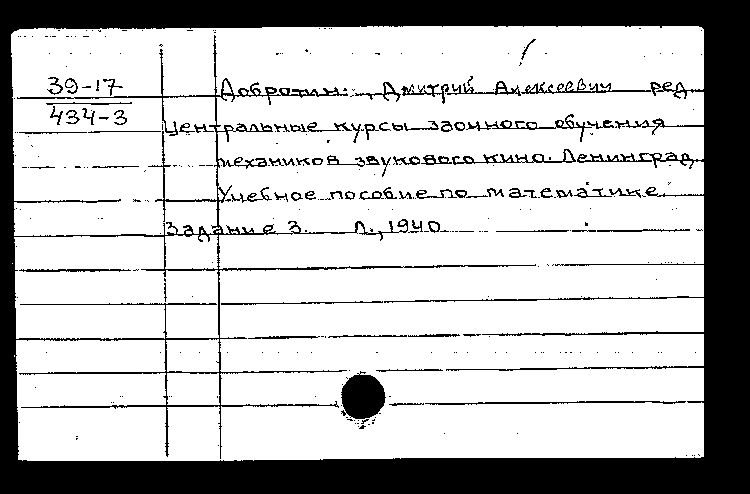 39-17
434-3
Добротин, Дмитрий Алексеевич ред.
Центральные курсы заочного обучения
механиков звукового кино. Ленинград.
Учебное пособие по математике.
Задание 3. Л., 1940